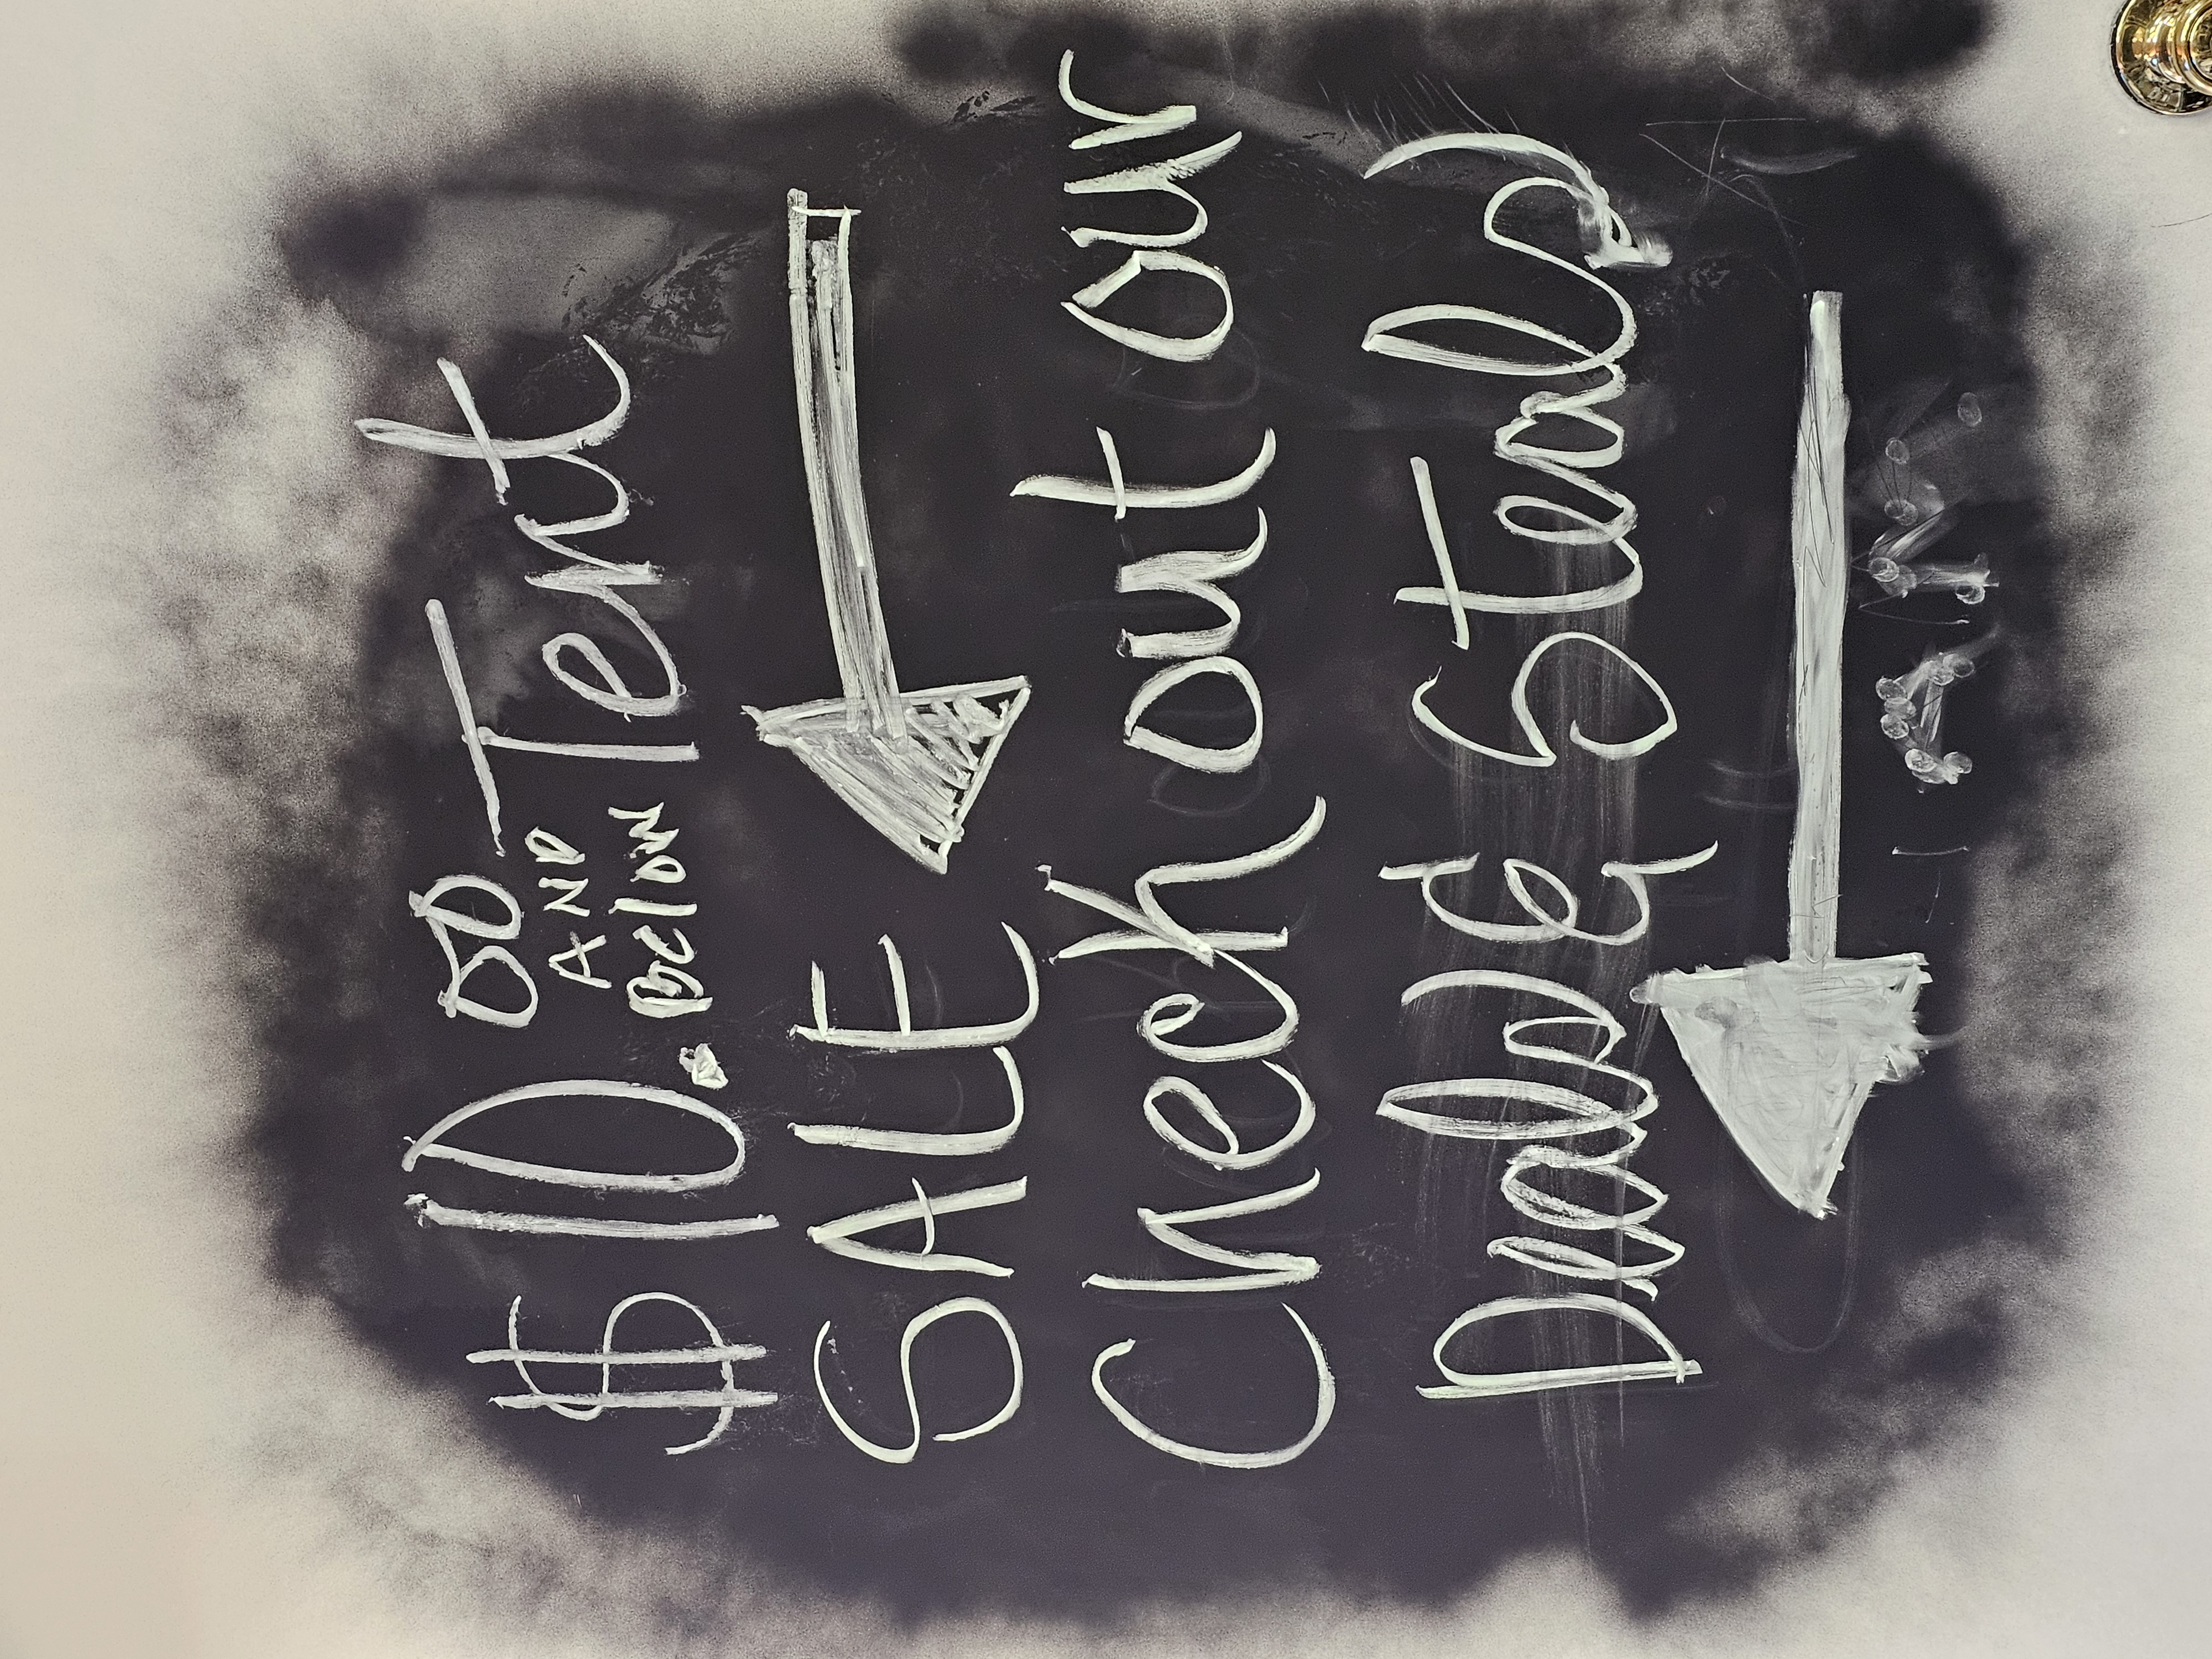 $10.00 AND Below Tent
SALE
Check out our
Deals & Steals